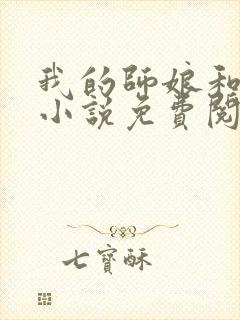 我的師娘和
小說免費閱
七寶酥